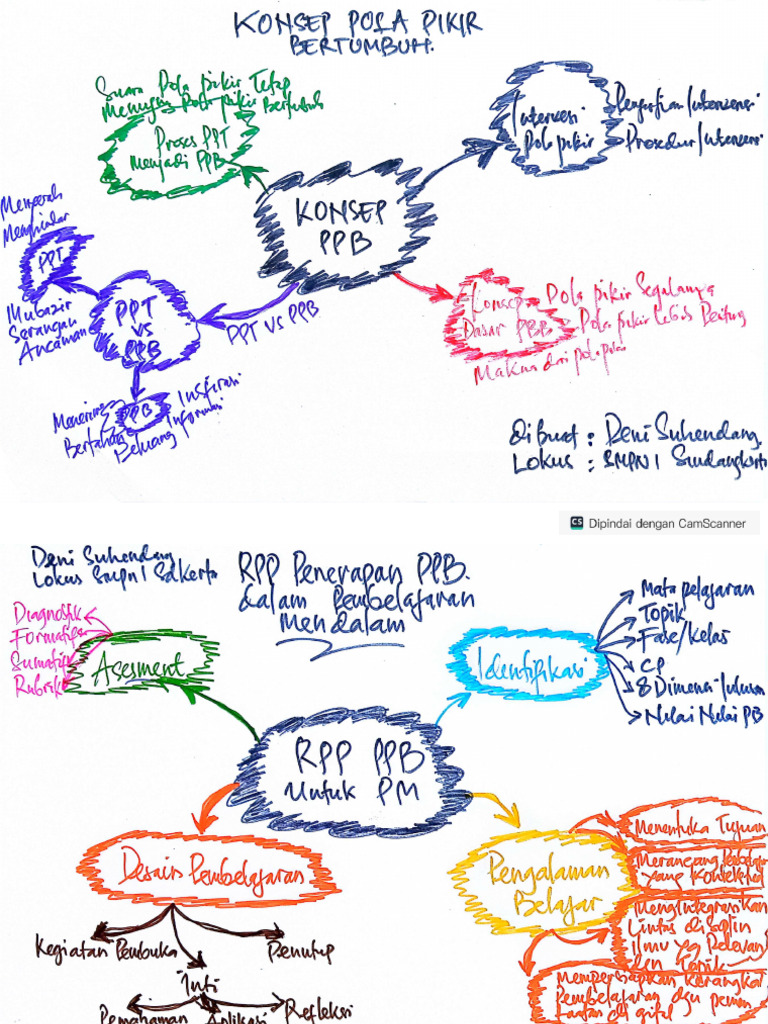 KONSEP POLA PIKIR
BERTUMBUH.
Suara Pola pikir Tetap
Pola pikir
Proses PPT
Menjadi PPB
Intervensi
pola pikir
Pengertian Intervensi
Prosedur Intervensi
KONSEP
PPB
Menyerah
Menghindar
PPT
Mubazir
Serangan
Ancaman
PPT
VS
PPB
PPT VS PPB
Konsep
Dasar PBB
Pola pikir Segalanya
Pola pikir
Makna dari pola pikir
Menerima
Bertahan
PPB
Inspirasi
Informasi
Peluang
Dibuat : Deni Suhendang.
Lokus : SMPN 1 Sindangkerta
CS Dipindai dengan CamScanner
Deni Suhendang
Lokus Smpn 1 Sdkerta
RPP Penerapan PPB.
dalam Pembelajaran
Mendalam
Diagnostik
Formatif
Sumatif
Rubrik
Asesment
Identifikasi
Mata pelajaran
Topik
Fase/Kelas
CP
8 Dimensi lulusan
Nilai Nilai PB
RPP PPB
Untuk PM
Desain Pembelajaran
Kegiatan Pembuka
Penutup
Inti
Pemahaman
Aplikasi
Refleksi
Pengalaman
Belajar
Menentuka Tujuan
Merancang
yang Kontekstual
Mengintegrasikan
Lintas disiplin
Ilmu yg Relevan
dgn Topik
Mempersiapkan Kerangka
Pembelajaran dgn peman
faatan digital